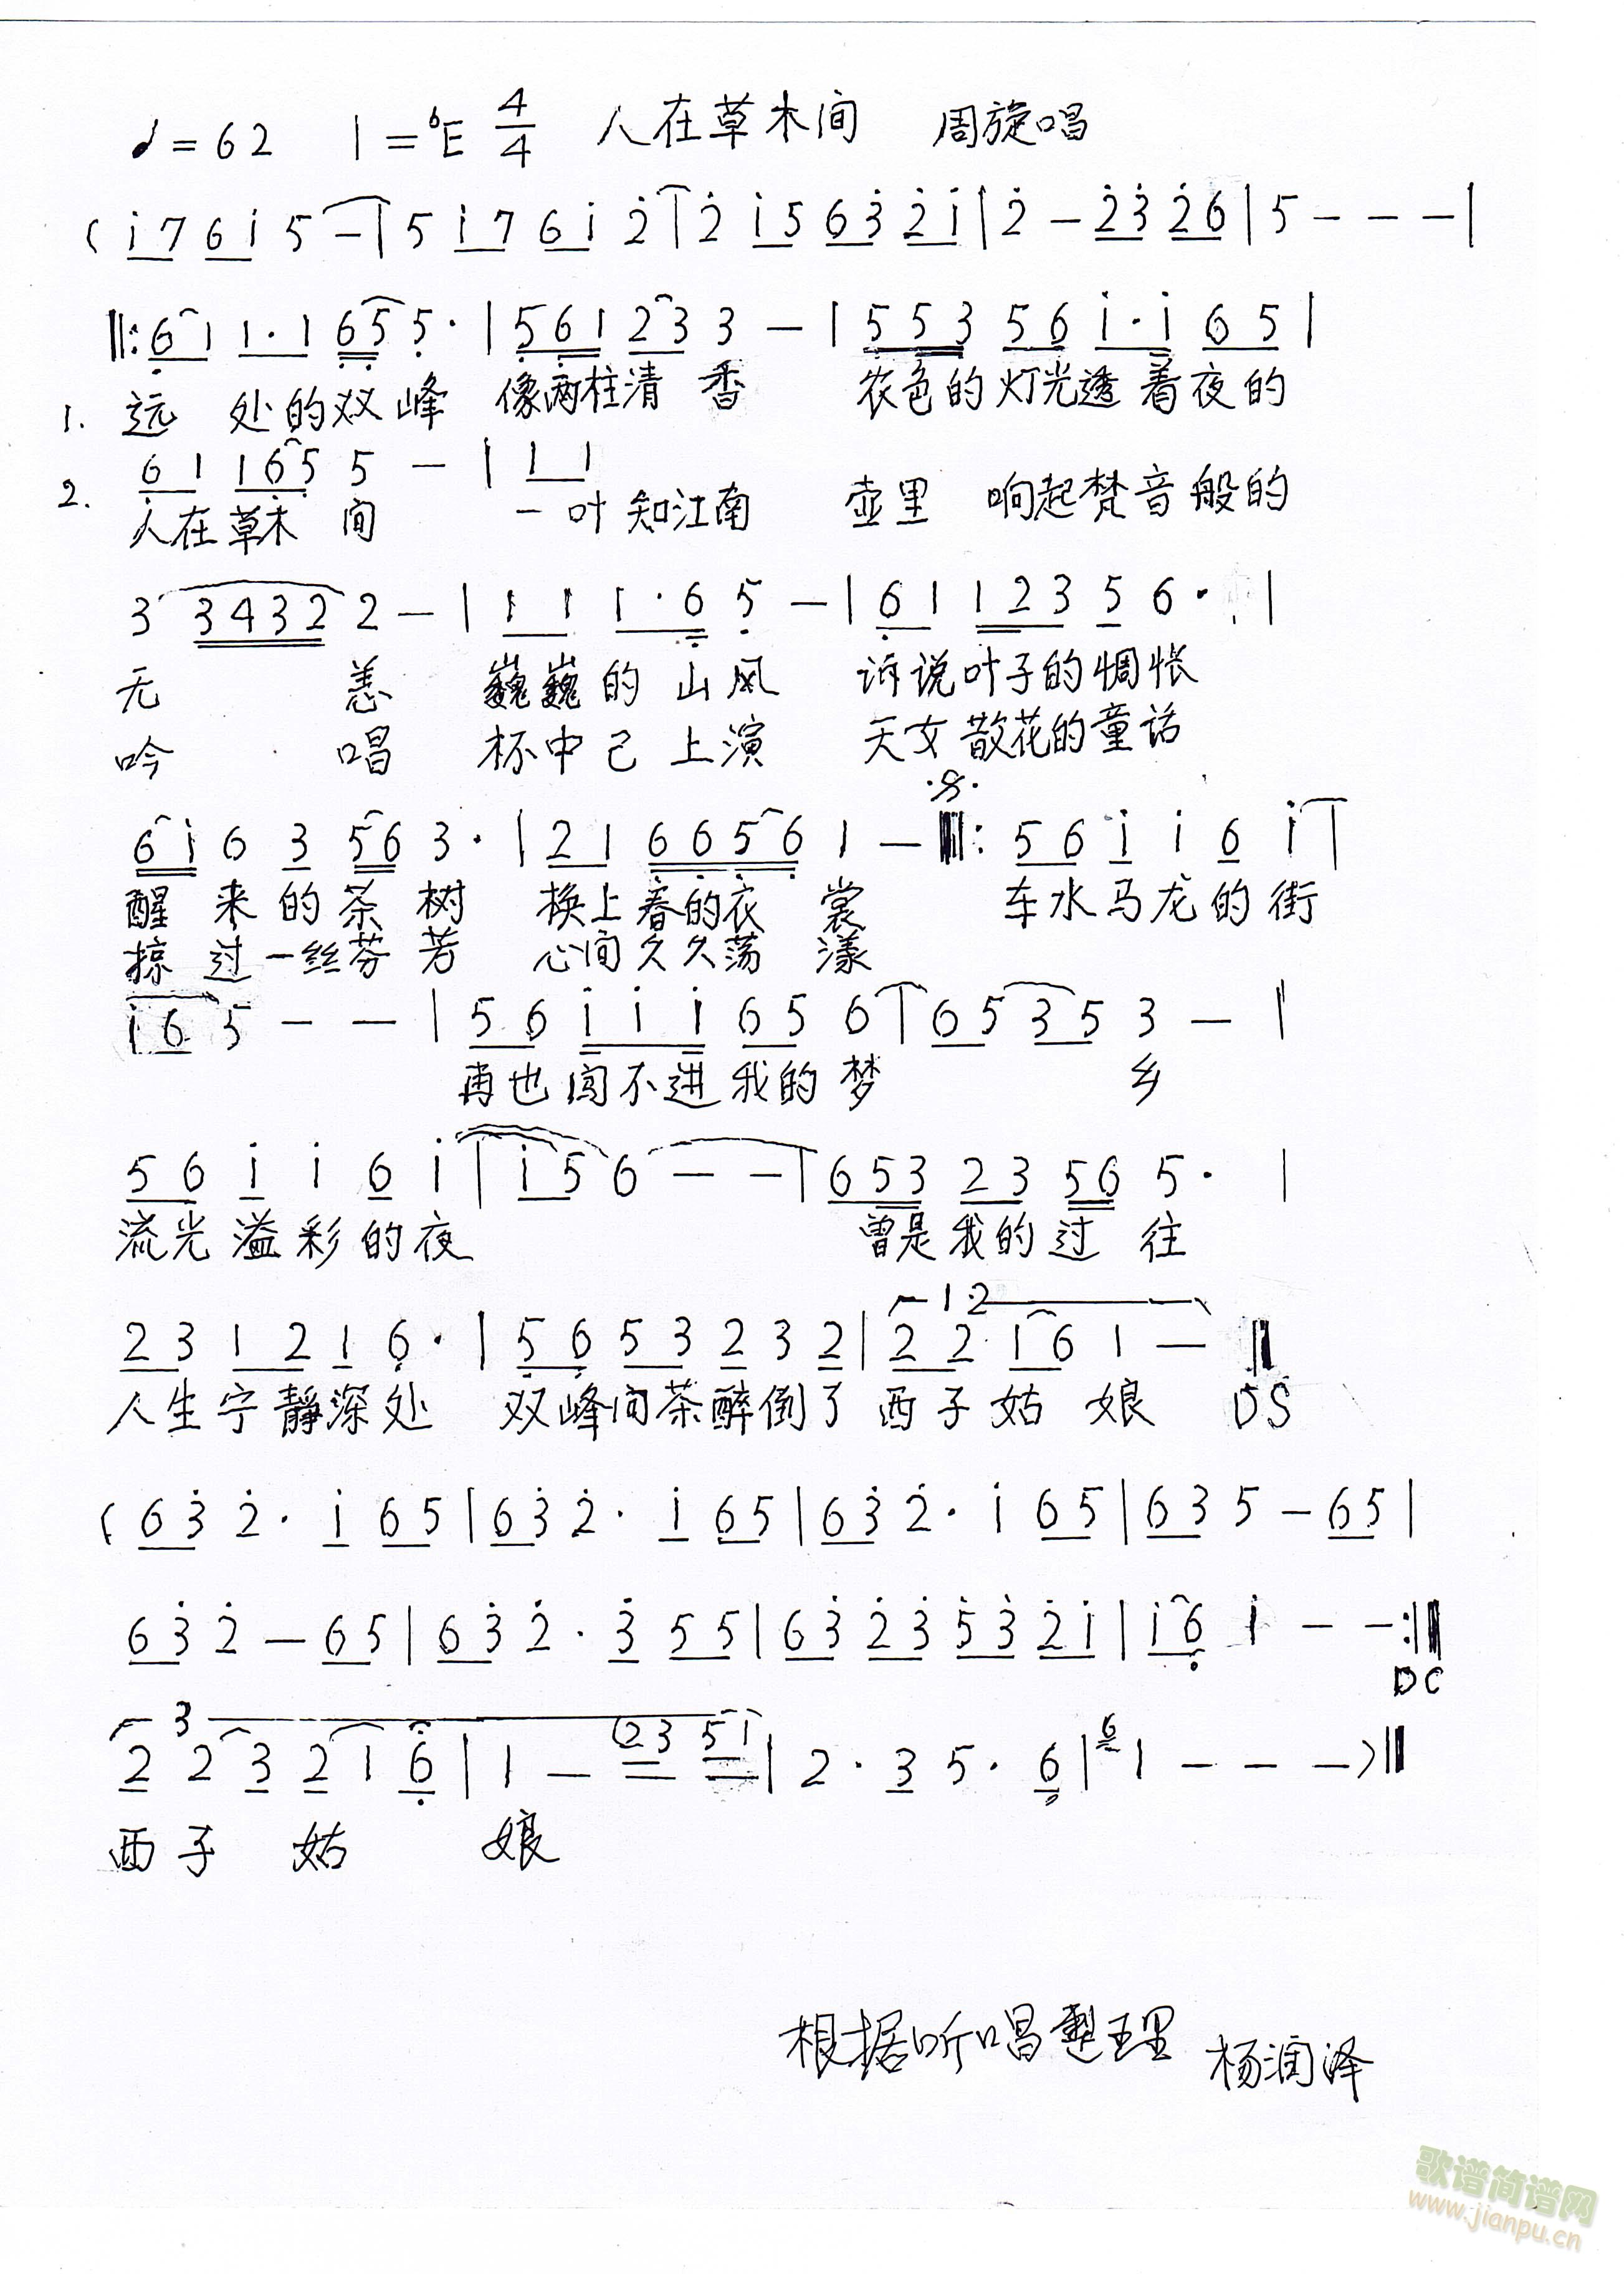 ♩=62 1=♭E 4/4 人在草木间 周旋唱
( i̇ 7 6 i̇ 5 - | 5 i̇ 7 6 i̇ 2̇ | 2̇ i̇ 5 6 3̇ 2̇ i̇ | 2̇ - 2̇ 3̇ 2̇ 6 | 5 - - - |
‖: 6̣ 1 1 · 1 6̣ 5̣ 5̣ · | 5̣ 6̣ 1 2 3 3 - | 5 5 3 5 6 i̇ · i̇ 6 5 |
1. 远 处的双峰 像两柱清 香 农色的灯光透着夜的
6̣ 1 1 6̣ 5̣ 5 - | 1 1
2. 人在草木 间 一叶知江南 壶里 响起梵音般的
3 3 4 3 2 2 - | 1 1 1 · 6̣ 5̣ - | 6̣ 1 1 2 3 5 6 · |
无 恙 巍巍的山风 诉说叶子的惆怅
吟 唱 杯中己上演 天女散花的童话
6 i̇ 6 3 5 6 3 · | 2 1 6̣ 6̣ 5̣ 6̣ 1 - ‖: 5 6 i̇ i̇ 6 i̇ |
醒 来的茶树 换上春的衣 裳 车水马龙的街
掠 过一丝芬芳 心间久久荡 漾
i̇ 6 5 - - | 5 6 i̇ i̇ i̇ 6 5 6 | 6 5 3 5 3 - |
再也闯不进我的梦 乡
5 6 i̇ i̇ 6 i̇ | i̇ 5 6 - - | 6 5 3 2 3 5 6 5 · |
流光溢彩的夜 曾是我的过往
1.2
2 3 1 2 1 6̣ · | 5̣ 6̣ 5 3 2 3 2 | 2 2 1 6 1 - ‖
人生宁静深处 双峰间茶醉倒了西子姑 娘 DS
( 6 3̇ 2̇ · i̇ 6 5 | 6 3̇ 2̇ · i̇ 6 5 | 6 3̇ 2̇ · i̇ 6 5 | 6 3 5 - 6 5 |
6 3̇ 2̇ - 6 5 | 6 3̇ 2̇ · 3̇ 5 5 | 6 3̇ 2̇ 3̇ 5̇ 3̇ 2̇ i̇ | i̇ 6̣ i̇ - - :‖
DC
3
2 2 3 2 1 6̣ | 1 - (2 3 5 1 | 2 · 3 5 · 6̣ | 6 1 - - - )‖
西子 姑 娘
根据听唱整理 杨润泽
歌谱简谱网
www.jianpu.cn